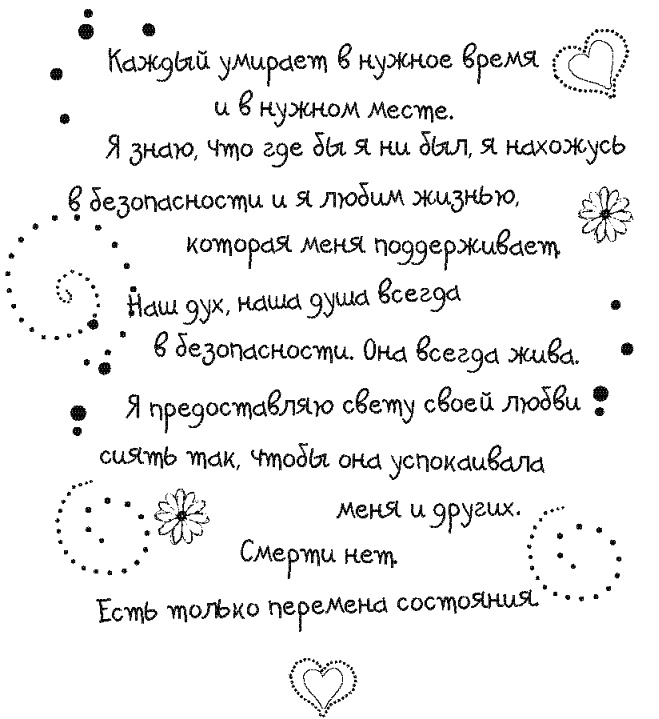 Каждый умирает в нужное время
и в нужном месте.
Я знаю, что где бы я ни был, я нахожусь
в безопасности и я любим жизнью,
которая меня поддерживает.
Наш дух, наша душа всегда
в безопасности. Она всегда жива.
Я предоставляю свету своей любви
сиять так, чтобы она успокаивала
меня и других.
Смерти нет.
Есть только перемена состояния.